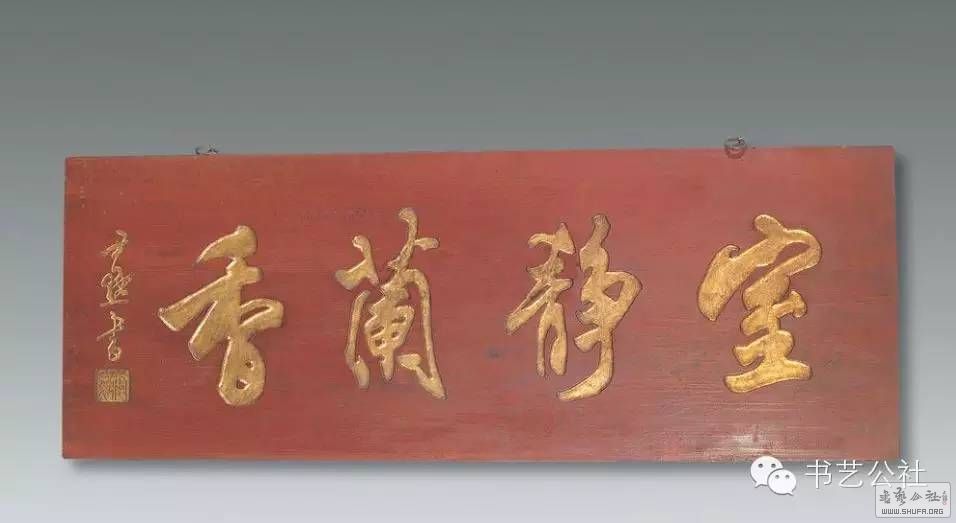 室靜蘭香
書
书艺公社
书艺公社
WWW.SHUFA.ORG